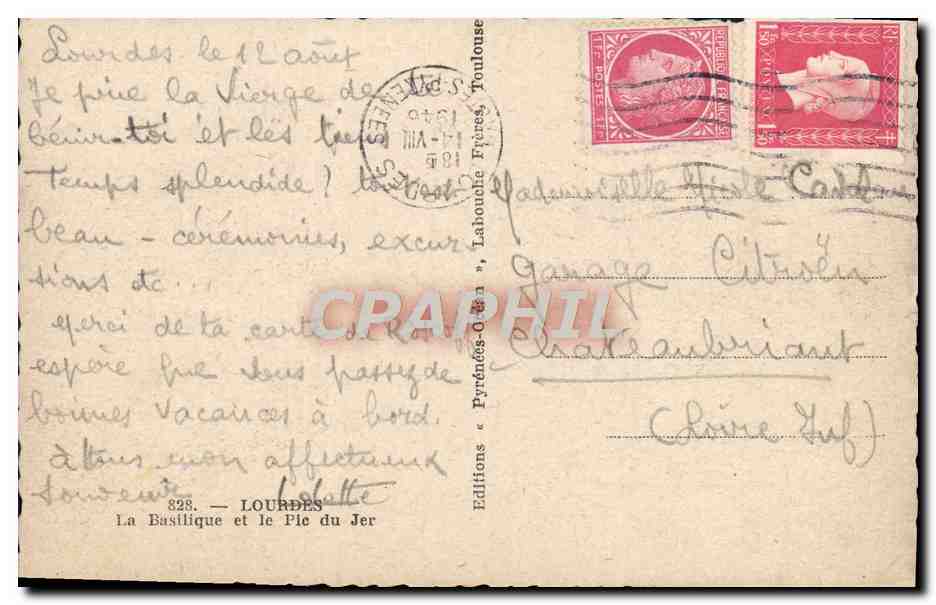 Lourdes le 12 août
Je prie la Vierge de
bénir toi et les tiens
temps splendide ! tout est
beau - cérémonies, excur
sions etc ...
Merci de ta carte de
espère que vous passez de
bonnes vacances à bord.
à tous mon affectueux
souvenir Lolette
828. — LOURDES
La Basilique et le Pic du Jer
Editions « Pyrénées-Océan », Labouche Frères, Toulouse
18H
14-VIII
1946
REPUBLIQUE FRANÇAISE
1Fr POSTES 1Fr
RF
POSTES
1F50
1F50
Mademoiselle
Garage Citroën
Chateaubriant
(Loire Inf)
CPARHIL